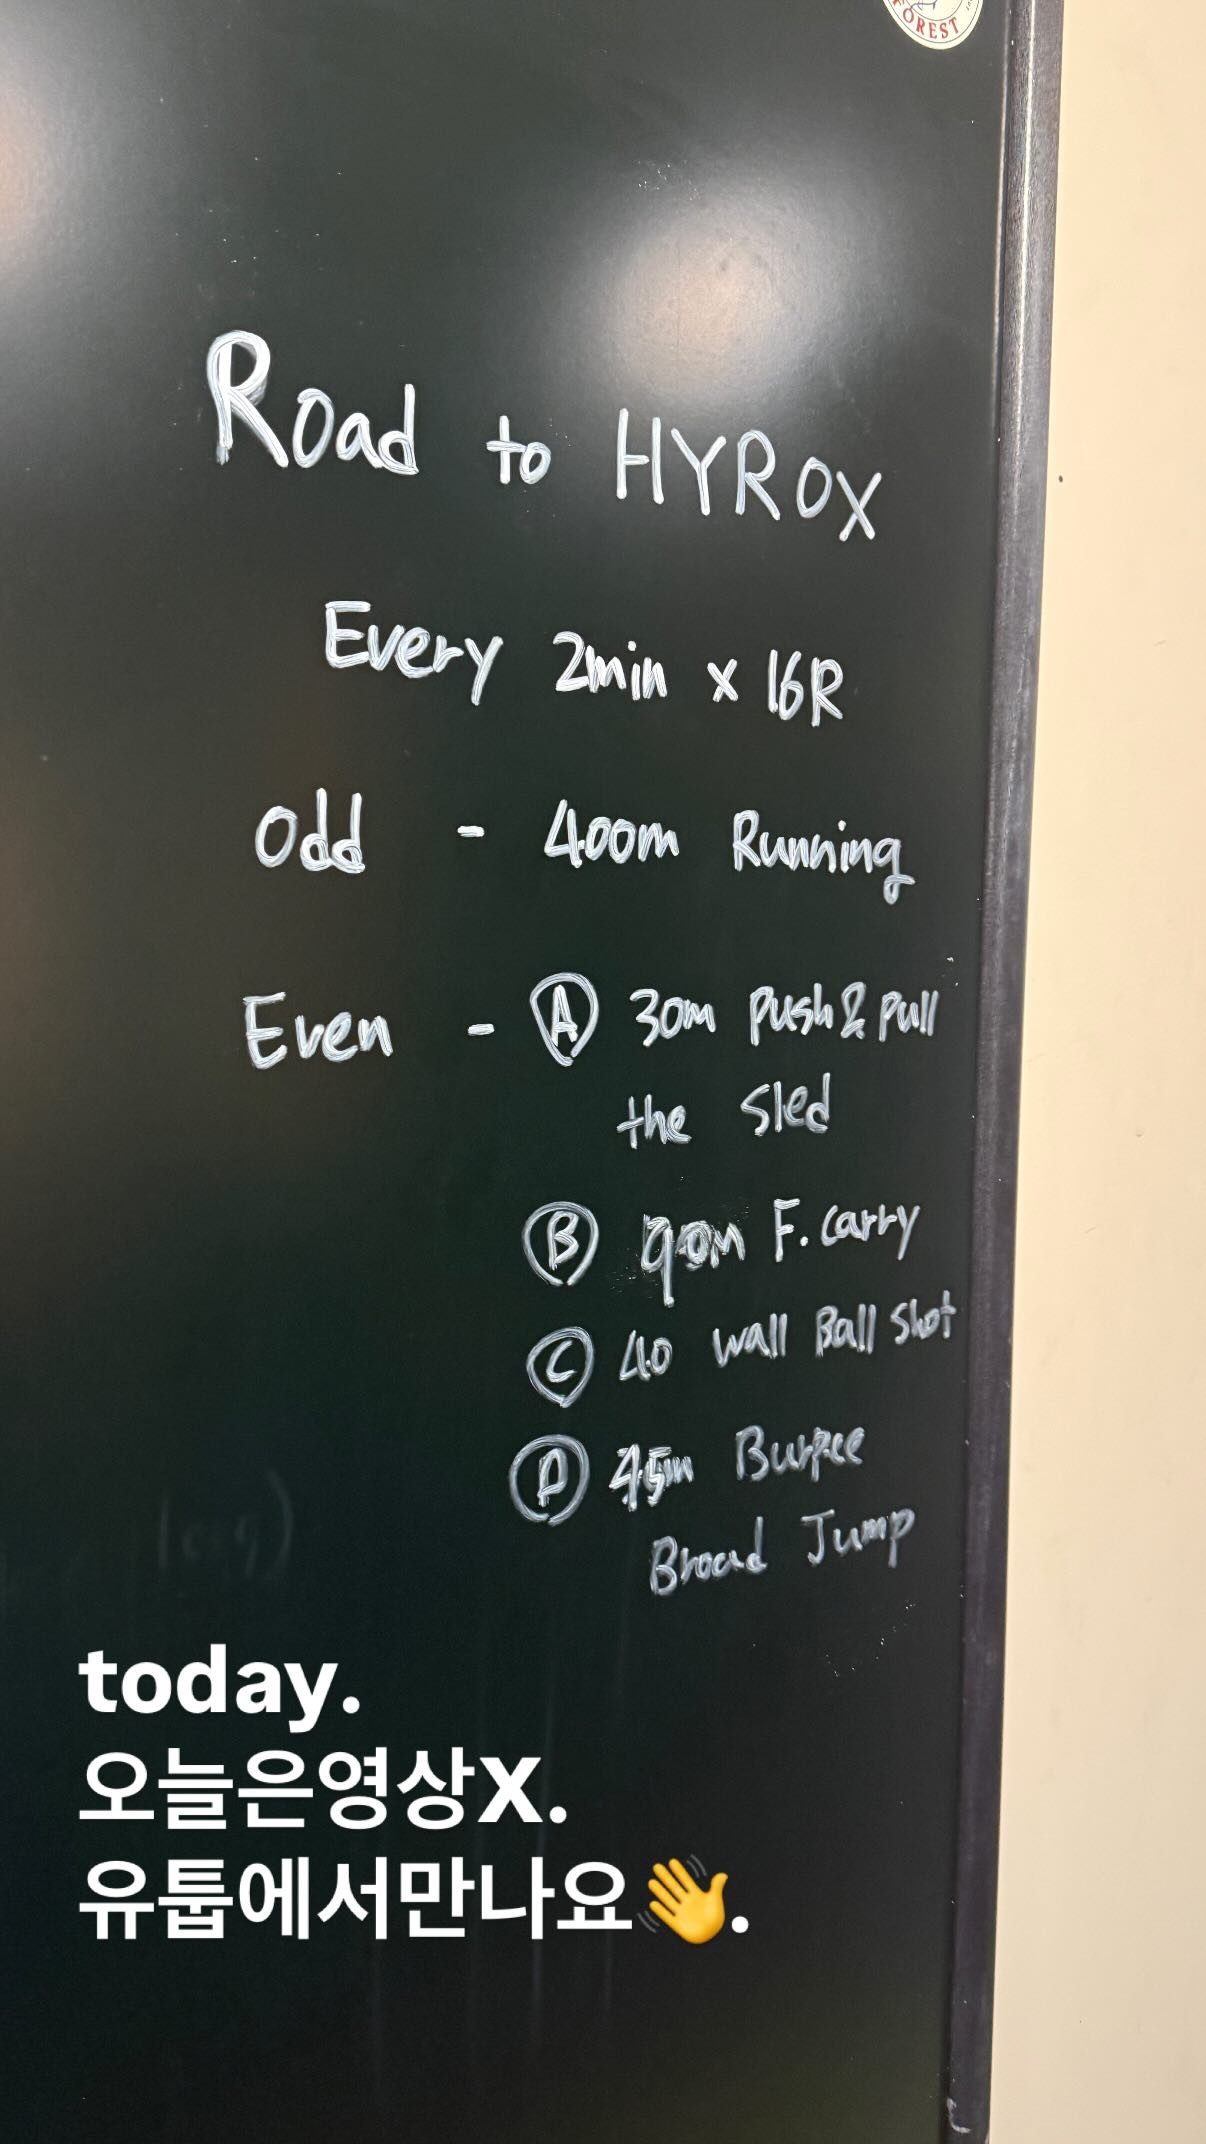 FOREST
Road to HYROX
Every 2min x 16R
Odd - 400m Running
Even - Ⓐ 30m Push & Pull
the Sled
Ⓑ 90m F. Carry
Ⓒ 40 Wall Ball Shot
Ⓓ 45m Burpee
Broad Jump
today.
오늘은영상X.
유툽에서만나요👋.